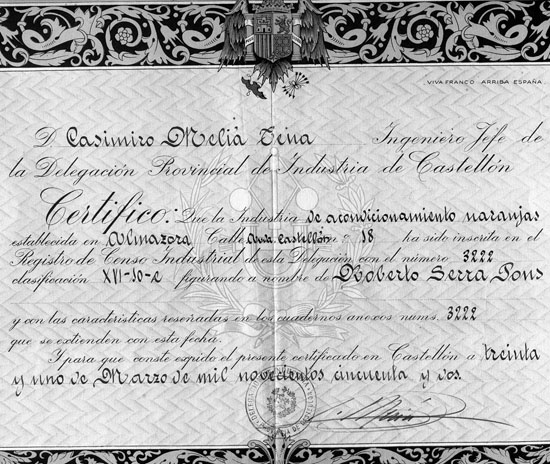 VIVA FRANCO ARRIBA ESPAÑA
D Casimiro Meliá Tena Ingeniero Jefe de
la Delegación Provincial de Industria de Castellón
Certifico: Que la Industria de acondicionamiento naranjas
establecida en Almazora Calle Avda. Castellón nº 18 ha sido inscrita en el
Registro de Censo Industrial de esta Delegación con el número 3222
clasificación XVI-10-c figurando a nombre de Roberto Serra Pons
y con las características reseñadas en los cuadernos anexos nums. 3222
que se extienden con esta fecha.
Y para que conste expido el presente certificado en Castellón a treinta
y uno de Marzo de mil novecientos cincuenta y dos.